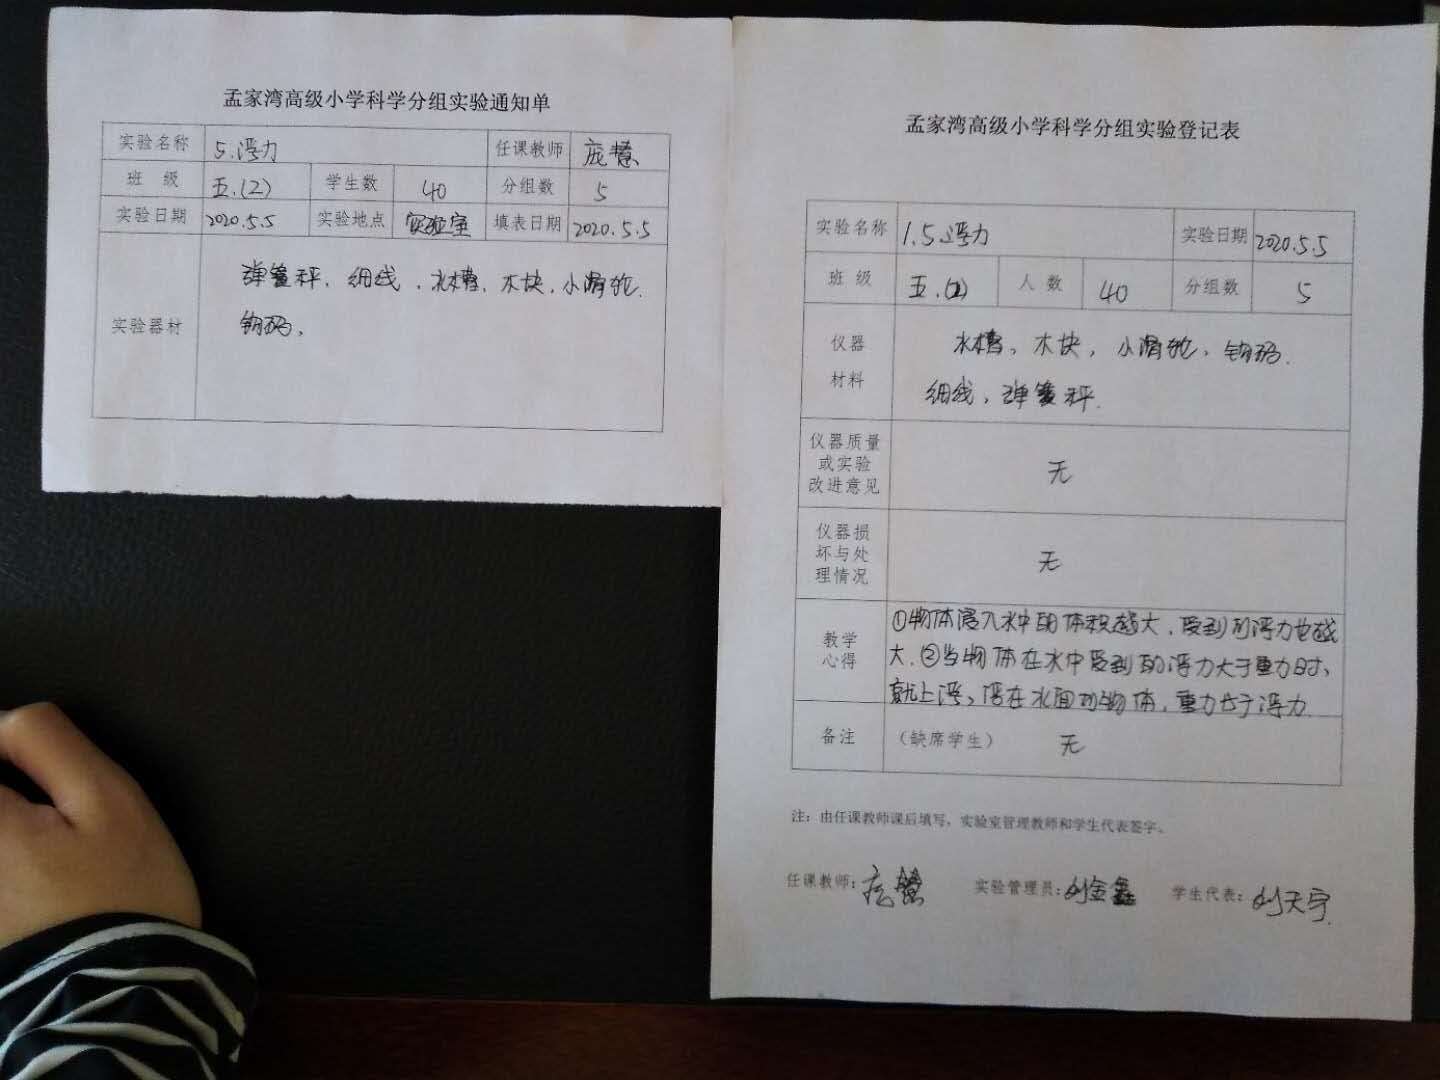 孟家湾高级小学科学分组实验通知单
实验名称 5.浮力 任课教师 庞慧
班 级 五.(2) 学生数 40 分组数 5
实验日期 2020.5.5 实验地点 实验室 填表日期 2020.5.5
实验器材
弹簧秤、细线、水槽、木块、小滑轮、
钩码、
孟家湾高级小学科学分组实验登记表
实验名称 1.5浮力 实验日期 2020.5.5
班 级 五.(2) 人 数 40 分组数 5
仪器
材料
水槽、木块、小滑轮、钩码.
细线、弹簧秤.
仪器质量
或实验
改进意见
无
仪器损
坏与处
理情况
无
教学
心得
①物体浸入水中的体积越大、受到的浮力也越
大.②当物体在水中受到的浮力大于重力时、
就上浮、浮在水面的物体,重力 于浮力.
备注 (缺席学生) 无
注:由任课教师课后填写,实验室管理教师和学生代表签字。
任课教师:庞慧 实验管理员:刘金鑫 学生代表:刘天宇